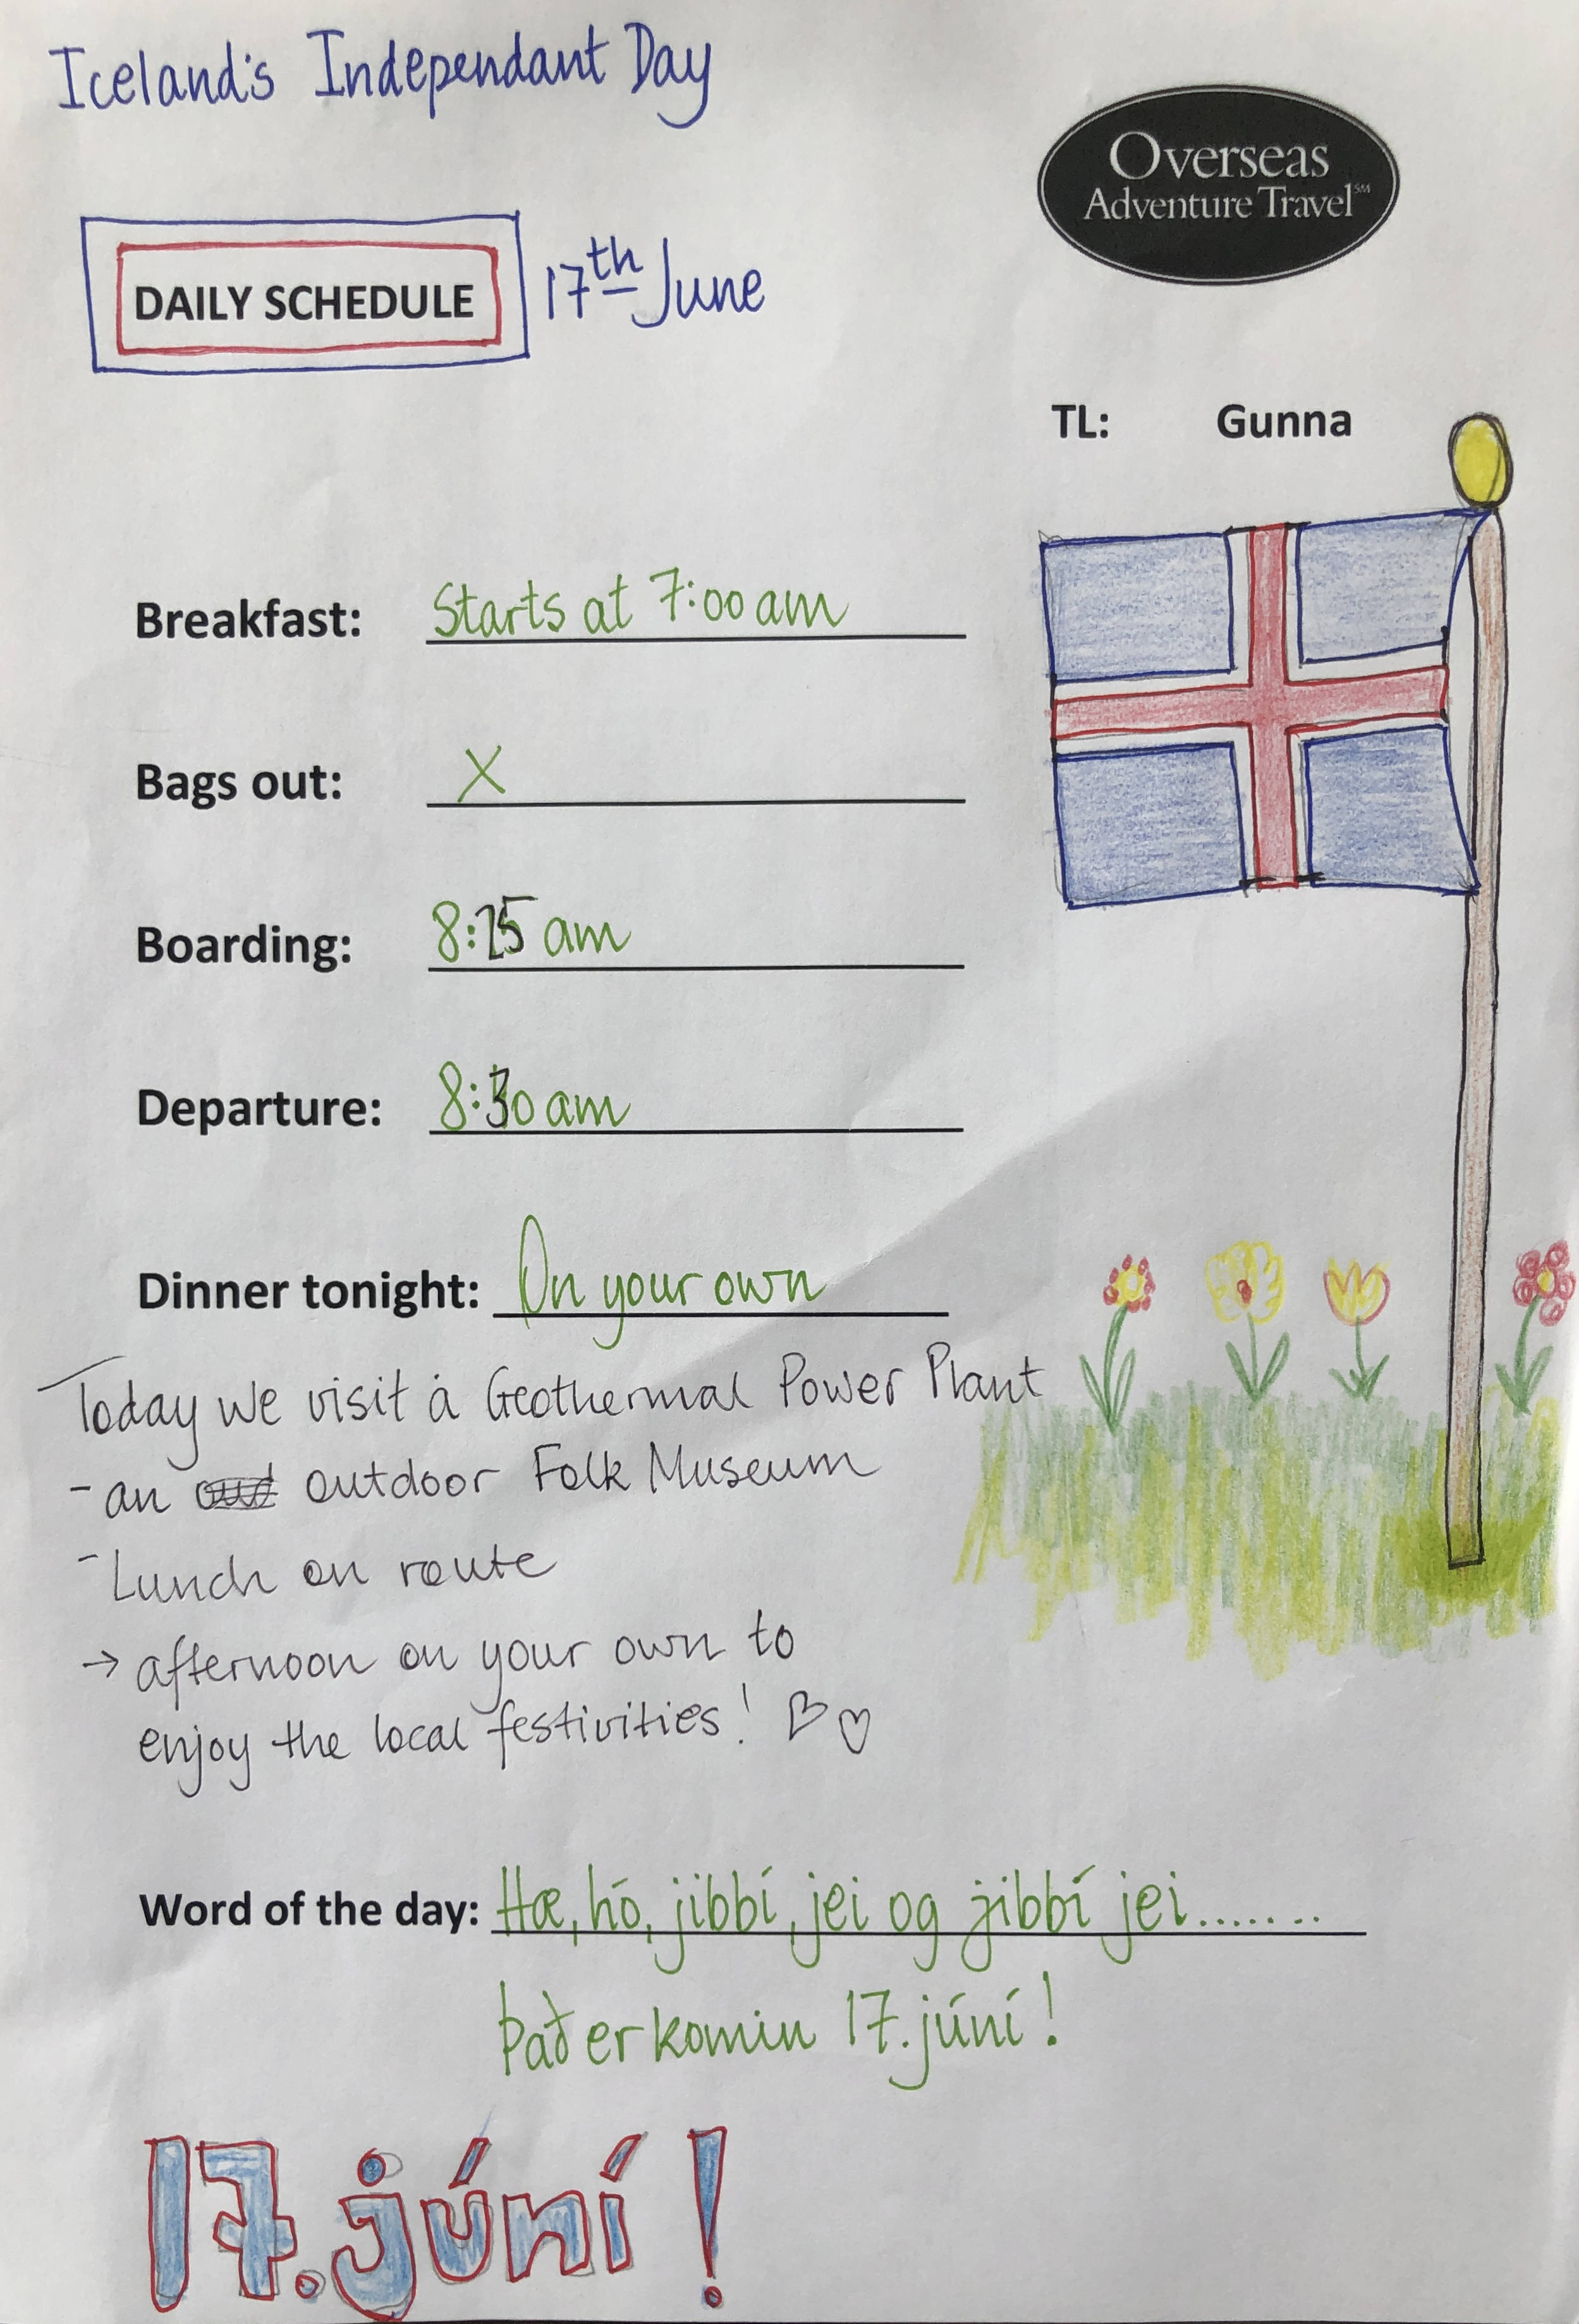 Iceland's Independant Day
Overseas
Adventure Travel℠
DAILY SCHEDULE 17th June
TL: Gunna
Breakfast: Starts at 7:00 am
Bags out: X
Boarding: 8:15 am
Departure: 8:30 am
Dinner tonight: On your own
Today we visit a Geothermal Power Plant
- an outdoor Folk Museum
- Lunch on route
→ afternoon on your own to
enjoy the local festivities! ♡♡
Word of the day: Hæ, hó, jibbí, jei og jibbí jei.......
Það er komin 17. júní!
17. júní!